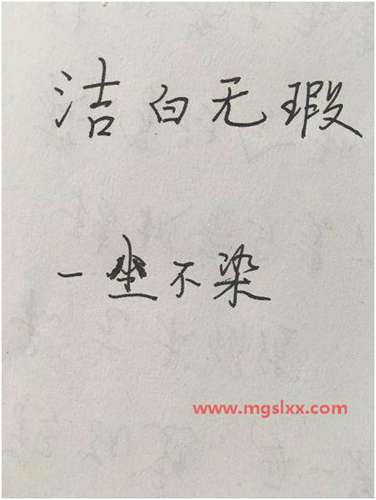 洁白无瑕
一坐不染
www.mgslxx.com